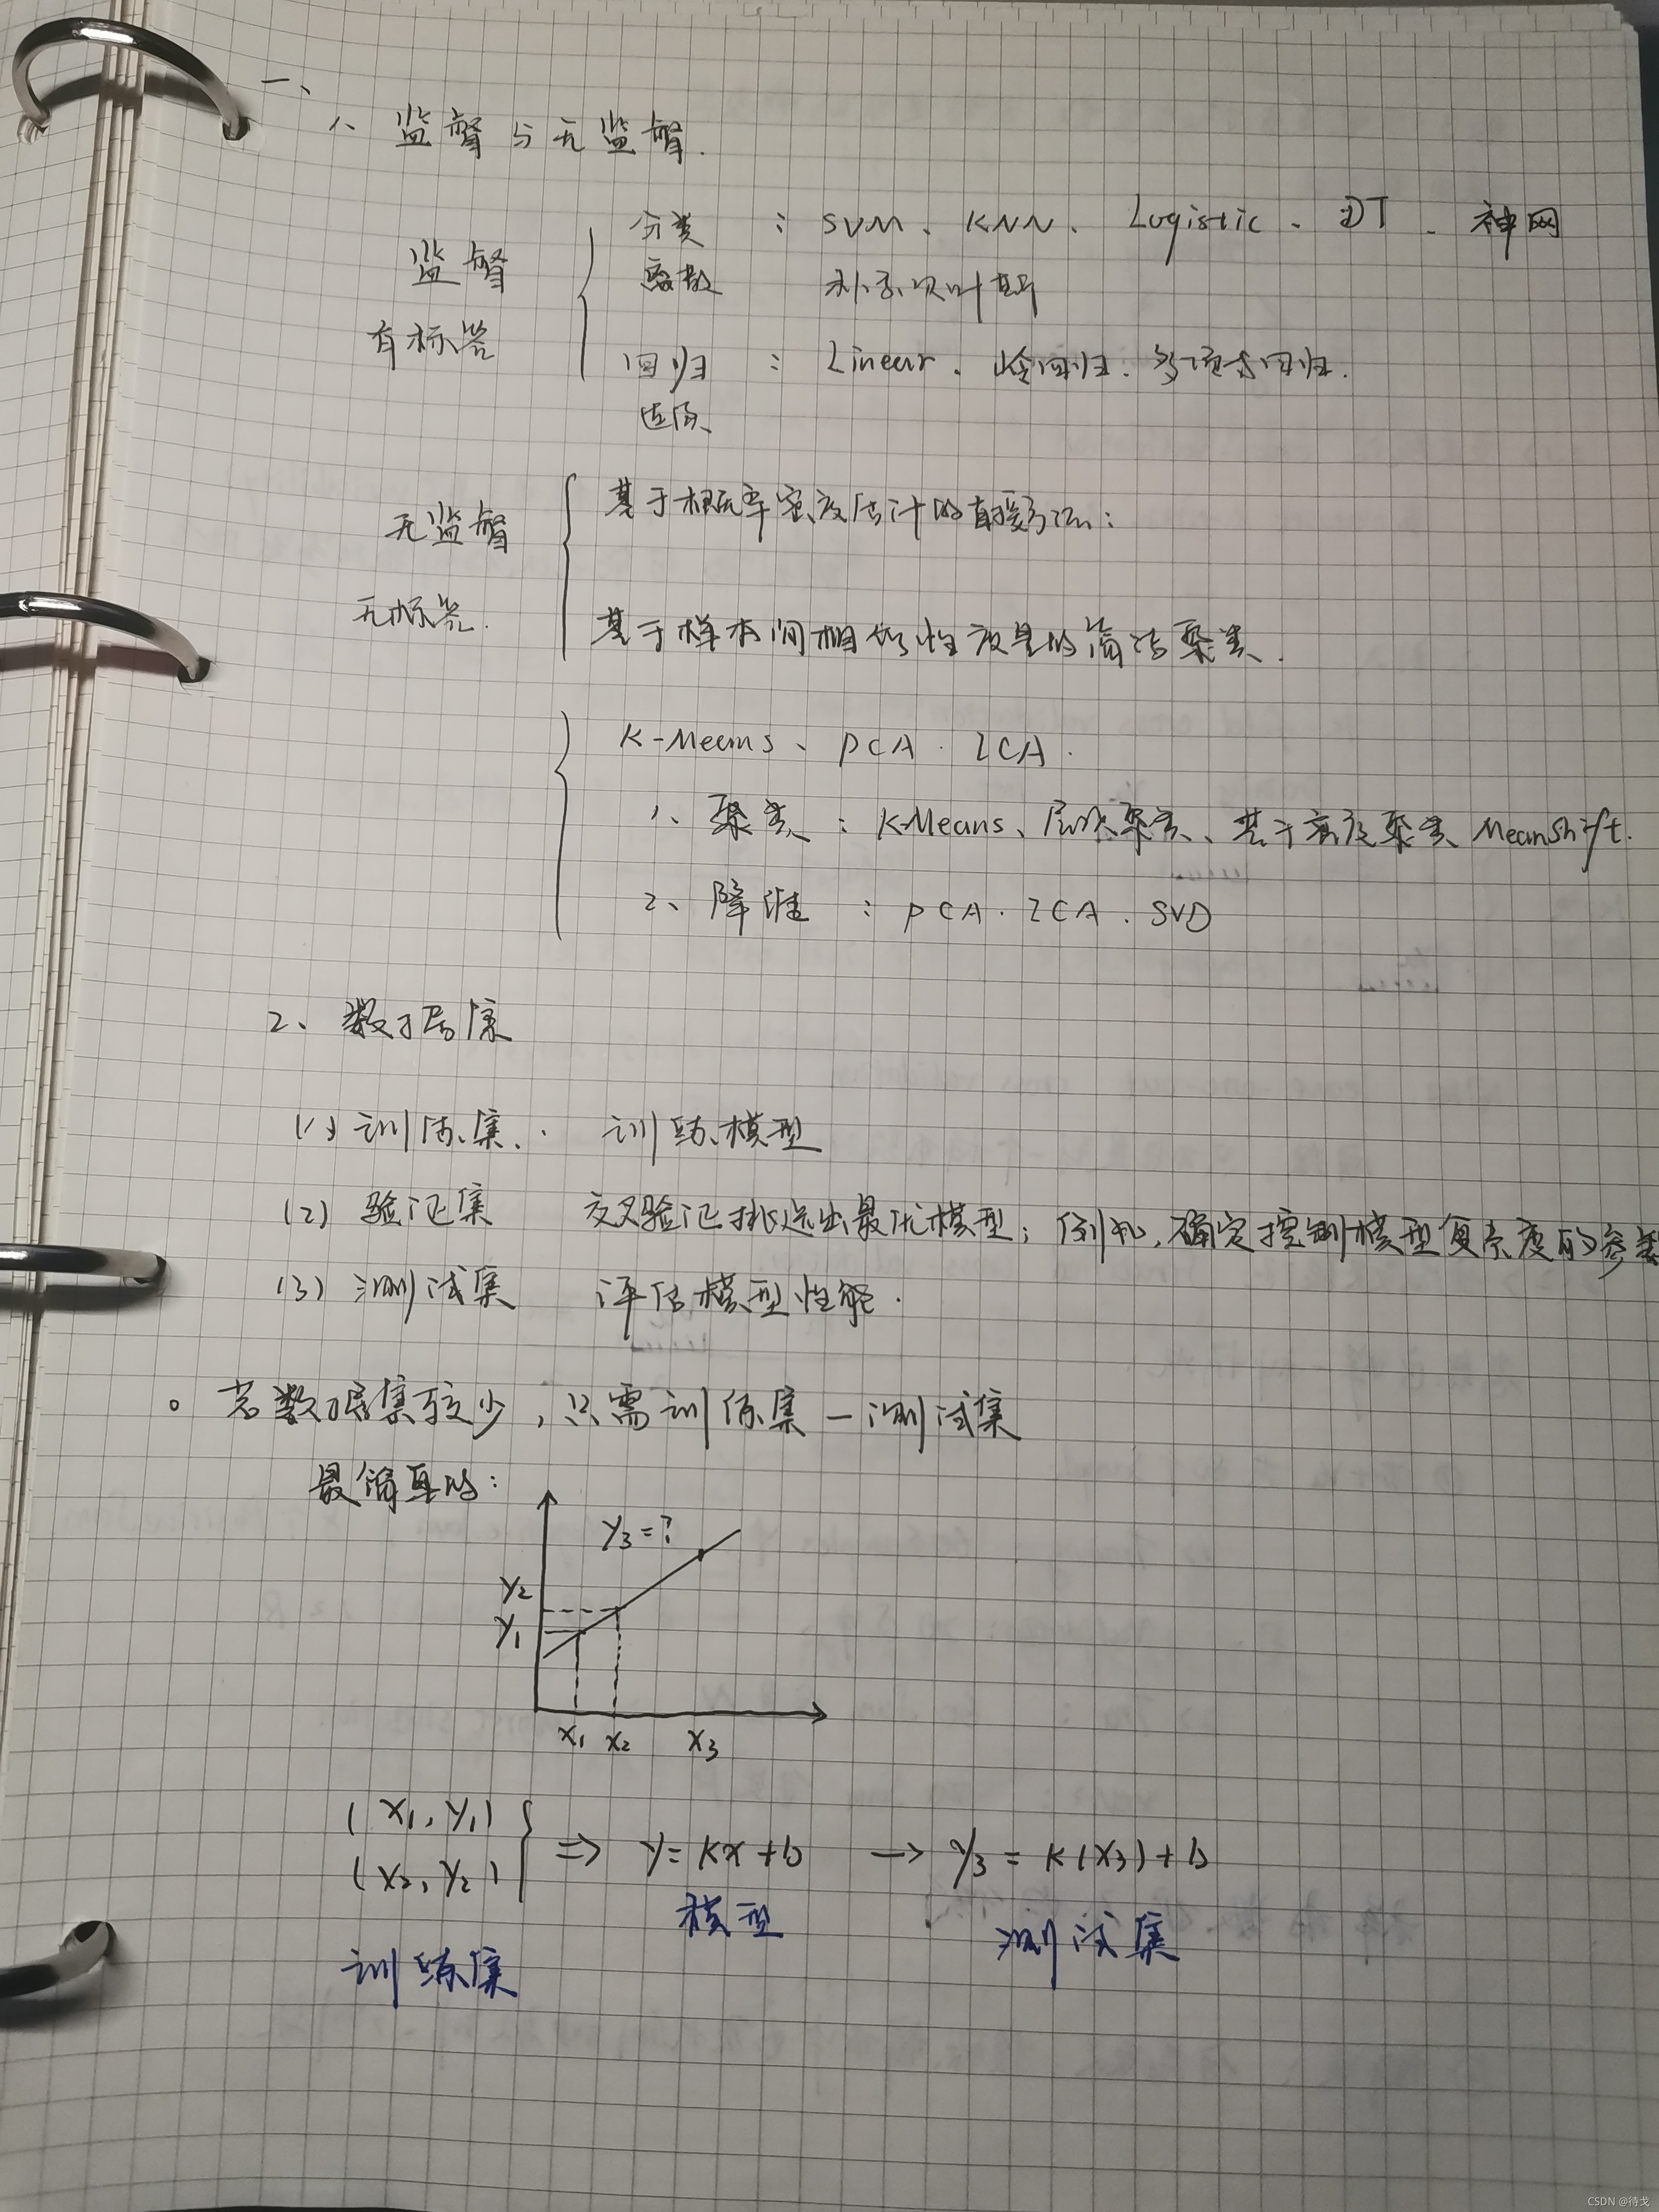 一、
1、监督与无监督.
监督 有标签
分类 : SVM、KNN、Logistic、DT、神网
离散 朴素贝叶斯
回归 : Linear、岭回归、多项式回归.
连续
无监督 无标签.
基于概率密度估计的直接方法:
基于样本间相似性度量的简洁聚类.
K-Means、PCA.ICA.
1、聚类:K-Means、层次聚类、基于密度聚类 MeanShift.
2、降维 : PCA.ICA.SVD
2、数据集
(1) 训练集. 训练模型
(2) 验证集 交叉验证挑选出最优模型; 例如,确定控制模型复杂度的参数
(3) 测试集 评估模型性能.
。若数据集较少,只需训练集—测试集
最简单的:
y3=?
y2
y1
x1 x2 x3
(x1,y1)
(x2,y2)
⇒ y=kx+b → y3=k(x3)+b
模型
训练集
测试集
CSDN @待戈